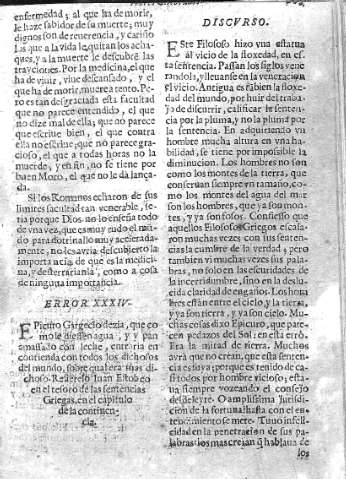 enfermedad; al que ha de morir,
le haze sabidor de la muerte; muy
dignos son de reverencia, y cariño
las que a la vida le quitan los acha-
ques, y a la muerte le descubrẽ las
trayciones. Por la medicina, el que
ha de vivir, vive descansado, y el
que ha de morir, muere a tento. Pe-
ro es tan desgraciada esta facultad
que no parece entendido, el que
no dize mal de ella; que no parece
que escrive bien, el que contra
ella no escrive; que no parece gra-
cioso, el que a todas horas no la
muerde, y en fin, no se tiene por
buen Moro, el que no le dà lança-
da.
Si los Romanos echaron de sus
limites facultad tan venerable, se-
ria porque Dios no lo enseña todo
de una vez, que es muy rudo el mũ-
do para dotrinallo muy aceleradа-
mente, no les avria descubierto la
importancia de que es la medici-
na, y desterrarianla, como a cosa
de ninguna importancia.
ERROR XXXIV.
Epicuro Gargecio dezia, que co-
mo le diessen agua, y pan
amassado con leche, entraria en
contienda con todos los dichosos
del mundo, sobre qual era mas di-
choso. Refierelo Juan Estobeo
en el tesoro de las sentencias
Griegas, en el capitulo
de la continen-
cia.
DISCVRSO.
Este Filosofo hizo vna estatua
al vicio de la floxedad, en es-
ta sentencia. Passan los siglos vene-
randola, y llevanse en la veneracion
el vicio. Antigua es fabien la floxe-
dad del mundo, por huir del traba-
jo de discurrir, calificar la senten-
cia por la pluma, y no la pluma por
la sentencia. En adquiriendo vn
hombre mucha altura en vna ha-
bilidad, se tiene por impossible la
diminucion. Los hombres no son
como los montes de la tierra, que
conservan siempre vn tamaño, co-
mo los montes del agua del mar
son los hombres, que ya son mon-
tes, y ya son fosos. Confiesso que
aquellos Filosofos Griegos escava-
on muchas vezes con sus senten-
cias la cumbre de la verdad; pero
tambien vi muchas vezes sus pala-
bras, no solo en las escuridades de
la incertidumbre, sino en la deslu-
cida claridad de engaños. Los hom-
bres estàn entre el cielo, y la tierra,
y ya son tierra, y ya son cielo. Mu-
chas cosas dixo Epicuro, que pare-
cen pedazos del Sol: en esta errò.
Era la mitad de tierra. Muchos
avrà que no crean, que esta senten-
cia es suya; porque es tenido de ca-
si todos, por hombre vicioso; esta-
va siempre vozeando el consejo
del deleyte. O amplissima Jurisdi-
cion de la fortuna! hasta con el en-
tendimiento se mete. Tuvo infeli-
cidad en la penetracion de sus pa-
labras: los mas creian q̃ hablava de
los